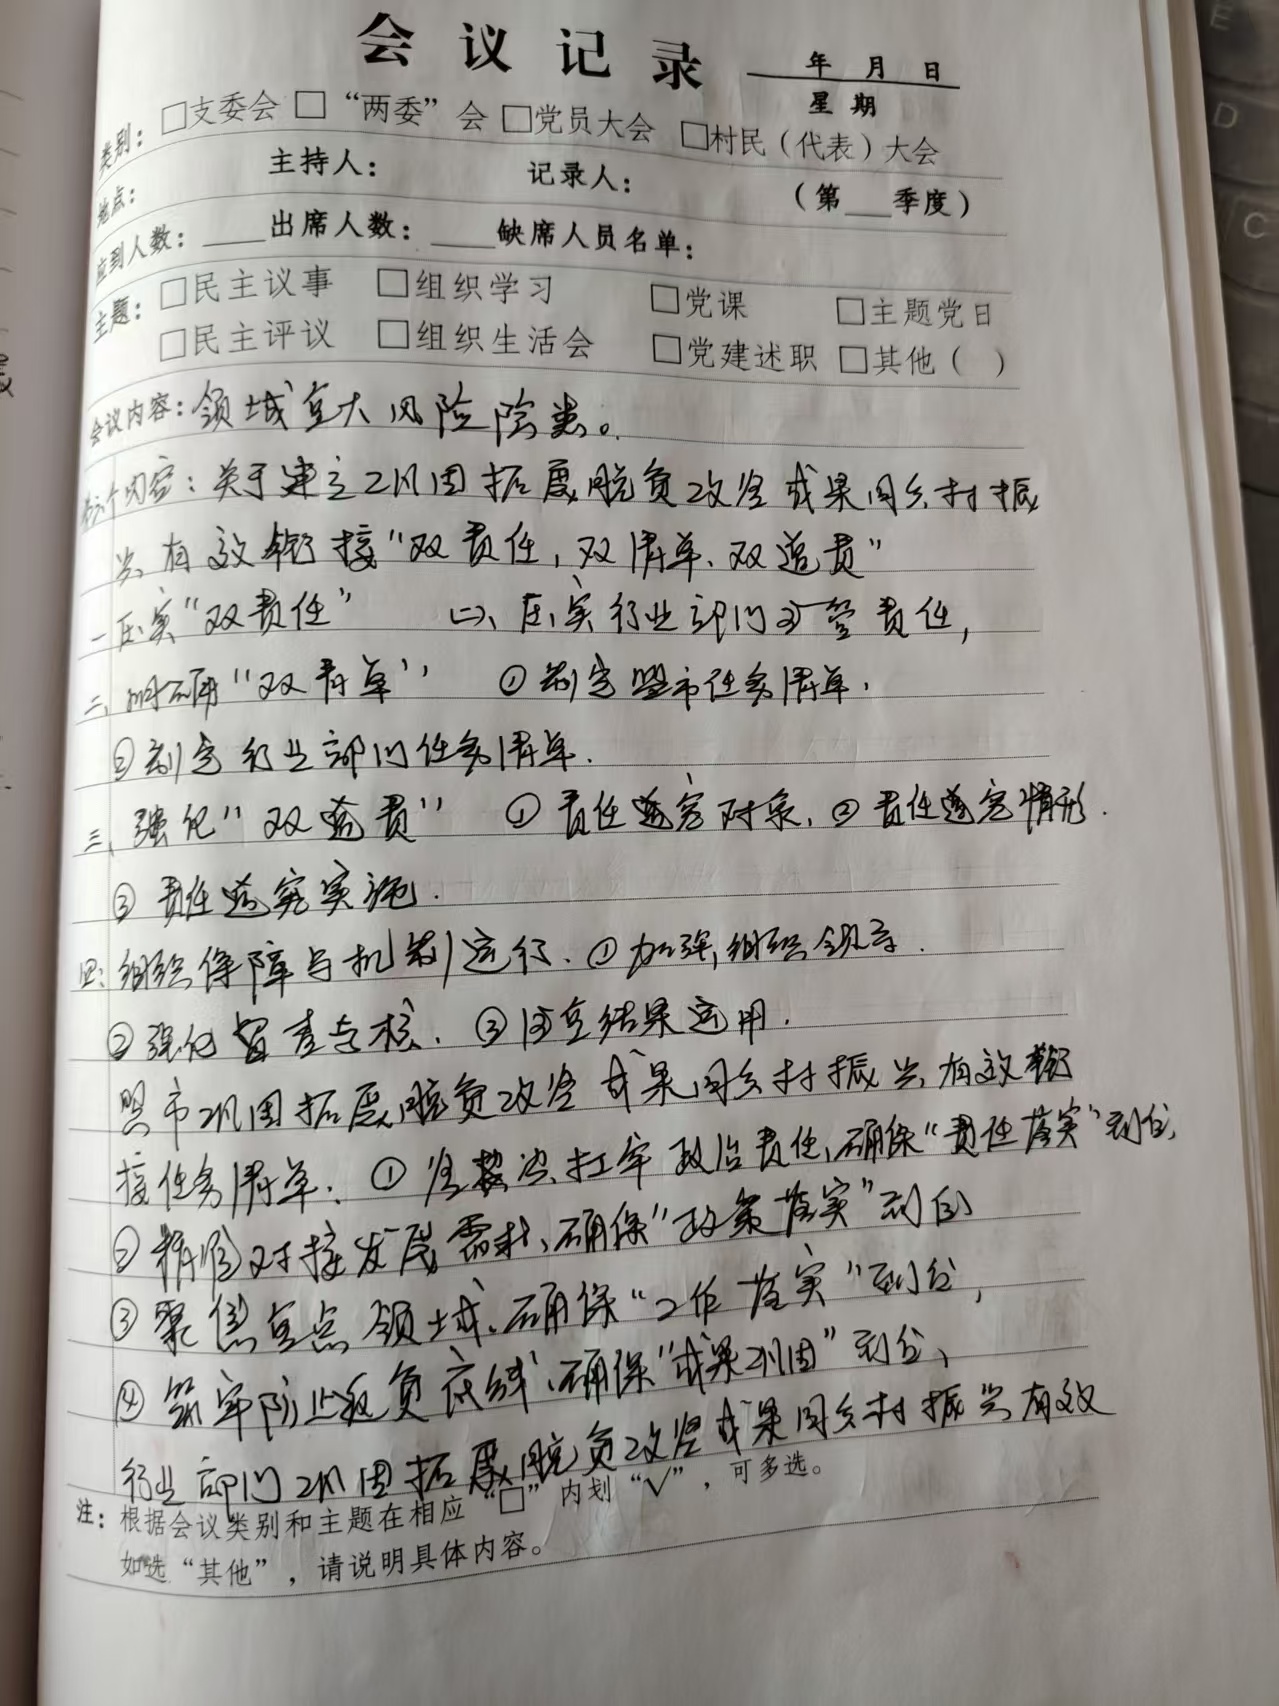 会议记录
年 月 日
星期
类别：□支委会 □“两委”会 □党员大会 □村民（代表）大会
地点： 主持人： 记录人： （第___季度）
应到人数：____出席人数：____缺席人员名单：
主题：□民主议事 □组织学习 □党课 □主题党日
□民主评议 □组织生活会 □党建述职 □其他（ ）
会议内容：领域重大风险隐患。
内容：关于建立巩固拓展脱贫攻坚成果同乡村振
兴有效衔接“双责任，双清单、双追责”
一压实“双责任” ㈡、压实行业部门 管责任，
二、明确“双清单” ①制定盟市任务清单．
②制定行业部门任务清单．
三、强化“双追责” ①责任追究对象．②责任追究情形．
③责任追究实施．
四：组织保障与机制运行．①加强组织领导．
②强化督查考核．③注重结果运用．
盟市巩固拓展脱贫攻坚成果同乡村振兴有效衔
接任务清单．①坚决扛牢政治责任，确保“责任落实”到位，
②精准对接发展需求、确保“政策落实”到位
③聚焦重点领域、确保“工作落实”到位，
④筑牢防止返贫底线、确保“成果巩固”到位、
行业部门巩固拓展脱贫攻坚成果同乡村振兴有效
注：根据会议类别和主题在相应“□”内划“√”，可多选。
如选“其他”，请说明具体内容。